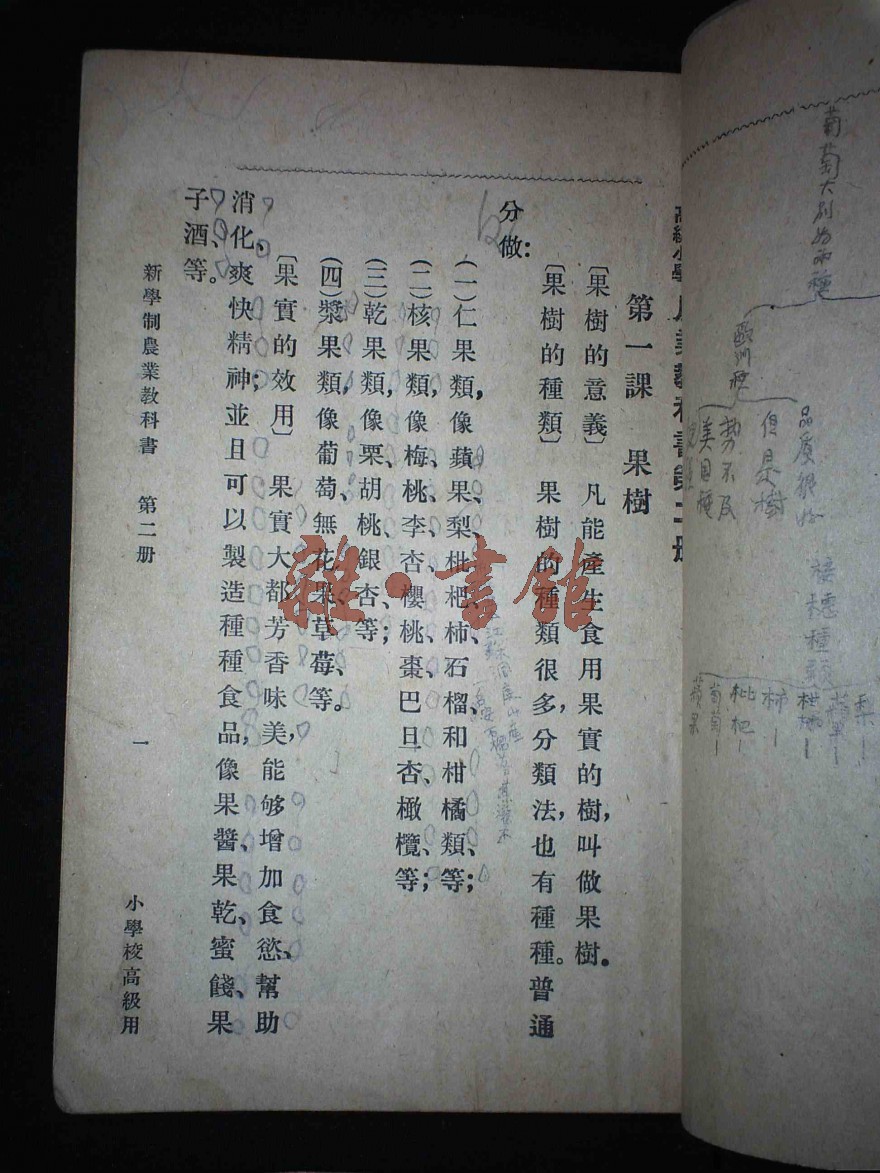 葡萄大別为兩種
歐洲種
品质很好
但是樹
勢不及
美国種
接穗種頭
梨
蘋果
柑橘
柿
枇杷
葡萄
蘋果
高級小學
第一課　果樹
〔果樹的意義〕　凡能產生食用果實的樹，叫做果樹。
〔果樹的種類〕　果樹的種類很多，分類法，也有種種。普通
分做：
（一）仁果類，像蘋果、梨、枇杷、柿、石榴、和柑橘類、等；
（二）核果類，像梅、桃、李、杏、櫻桃、棗、巴旦杏、橄欖、等；
（三）乾果類，像栗、胡桃、銀杏、等；
（四）漿果類，像葡萄、無花果、草莓、等。
〔果實的效用〕　果實大都芳香味美，能够增加食慾、幫助
消化、爽快精神；並且可以製造種種食品，像果醬、果乾、蜜餞、果
子酒、等。
新學制農業教科書　第二册
一
小學校高級用
雜·書館